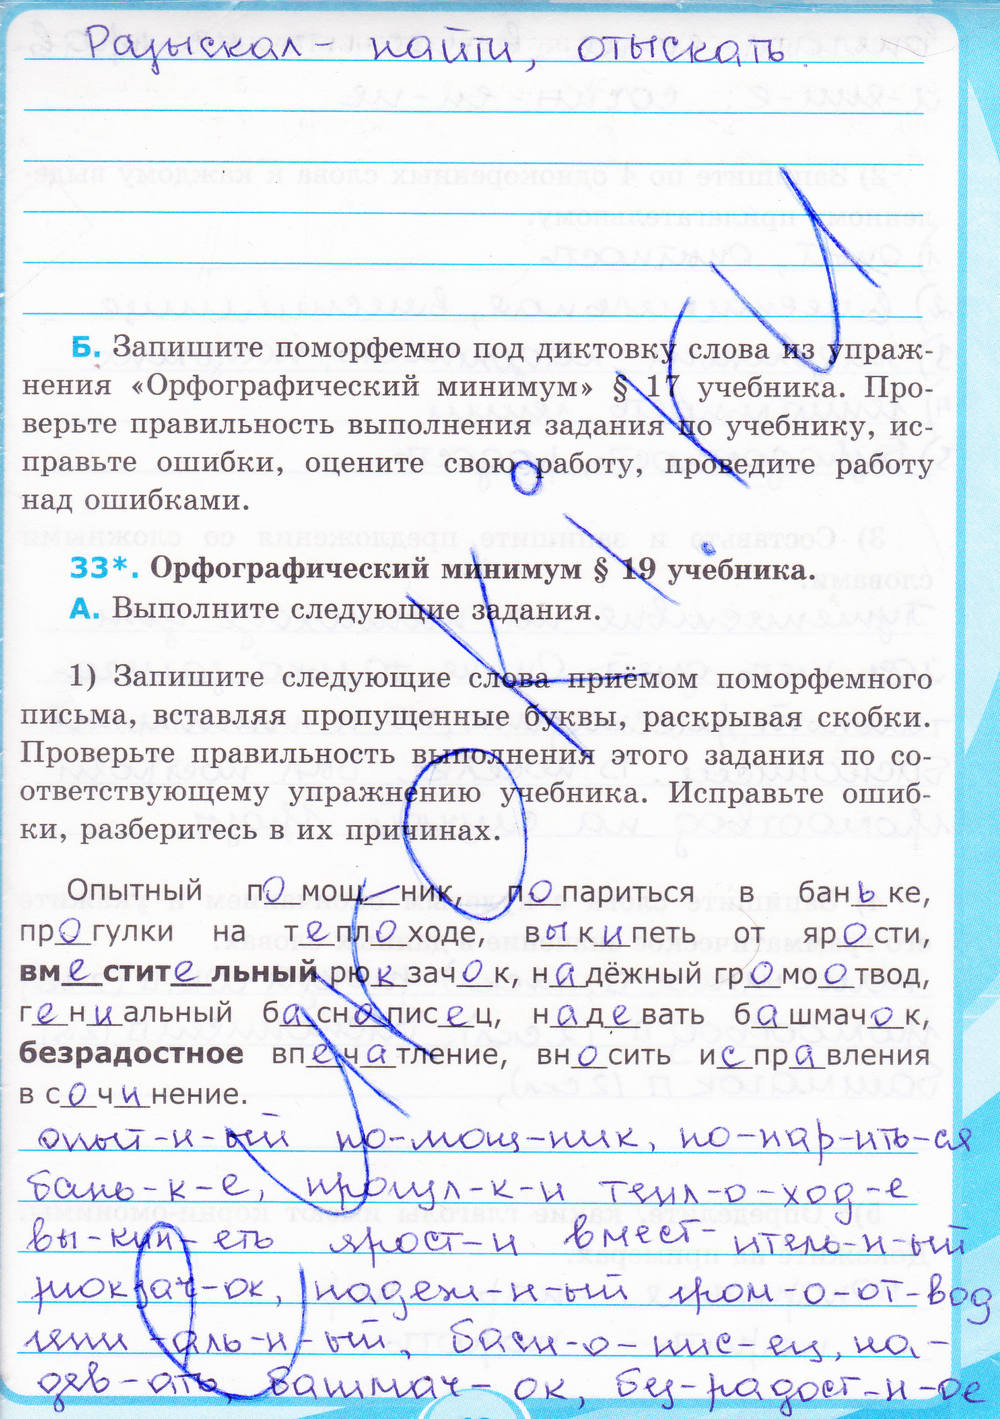 Разыскал - найти, отыскать
Б. Запишите поморфемно под диктовку слова из упраж-
нения «Орфографический минимум» § 17 учебника. Про-
верьте правильность выполнения задания по учебнику, ис-
правьте ошибки, оцените свою работу, проведите работу
над ошибками.
33*. Орфографический минимум § 19 учебника.
А. Выполните следующие задания.
1) Запишите следующие слова приёмом поморфемного
письма, вставляя пропущенные буквы, раскрывая скобки.
Проверьте правильность выполнения этого задания по со-
ответствующему упражнению учебника. Исправьте ошиб-
ки, разберитесь в их причинах.
Опытный помощник, попариться в баньке,
прогулки на теплоходе, выкипеть от ярости,
вместительный рюкзачок, надёжный громоотвод,
гениальный баснописец, надевать башмачок,
безрадостное впечатление, вносить исправления
в сочинение.
опыт-н-ый по-мощ-ник, по-пар-ить-ся
бань-к-е, прогул-к-и тепл-о-ход-е
вы-кип-еть ярост-и вмест-ительн-ый
рюкзач-ок, надеж-н-ый гром-о-от-вод
гени-аль-н-ый, басн-о-пис-ец, на-
дев-ать, башмач-ок, без-радост-н-ое